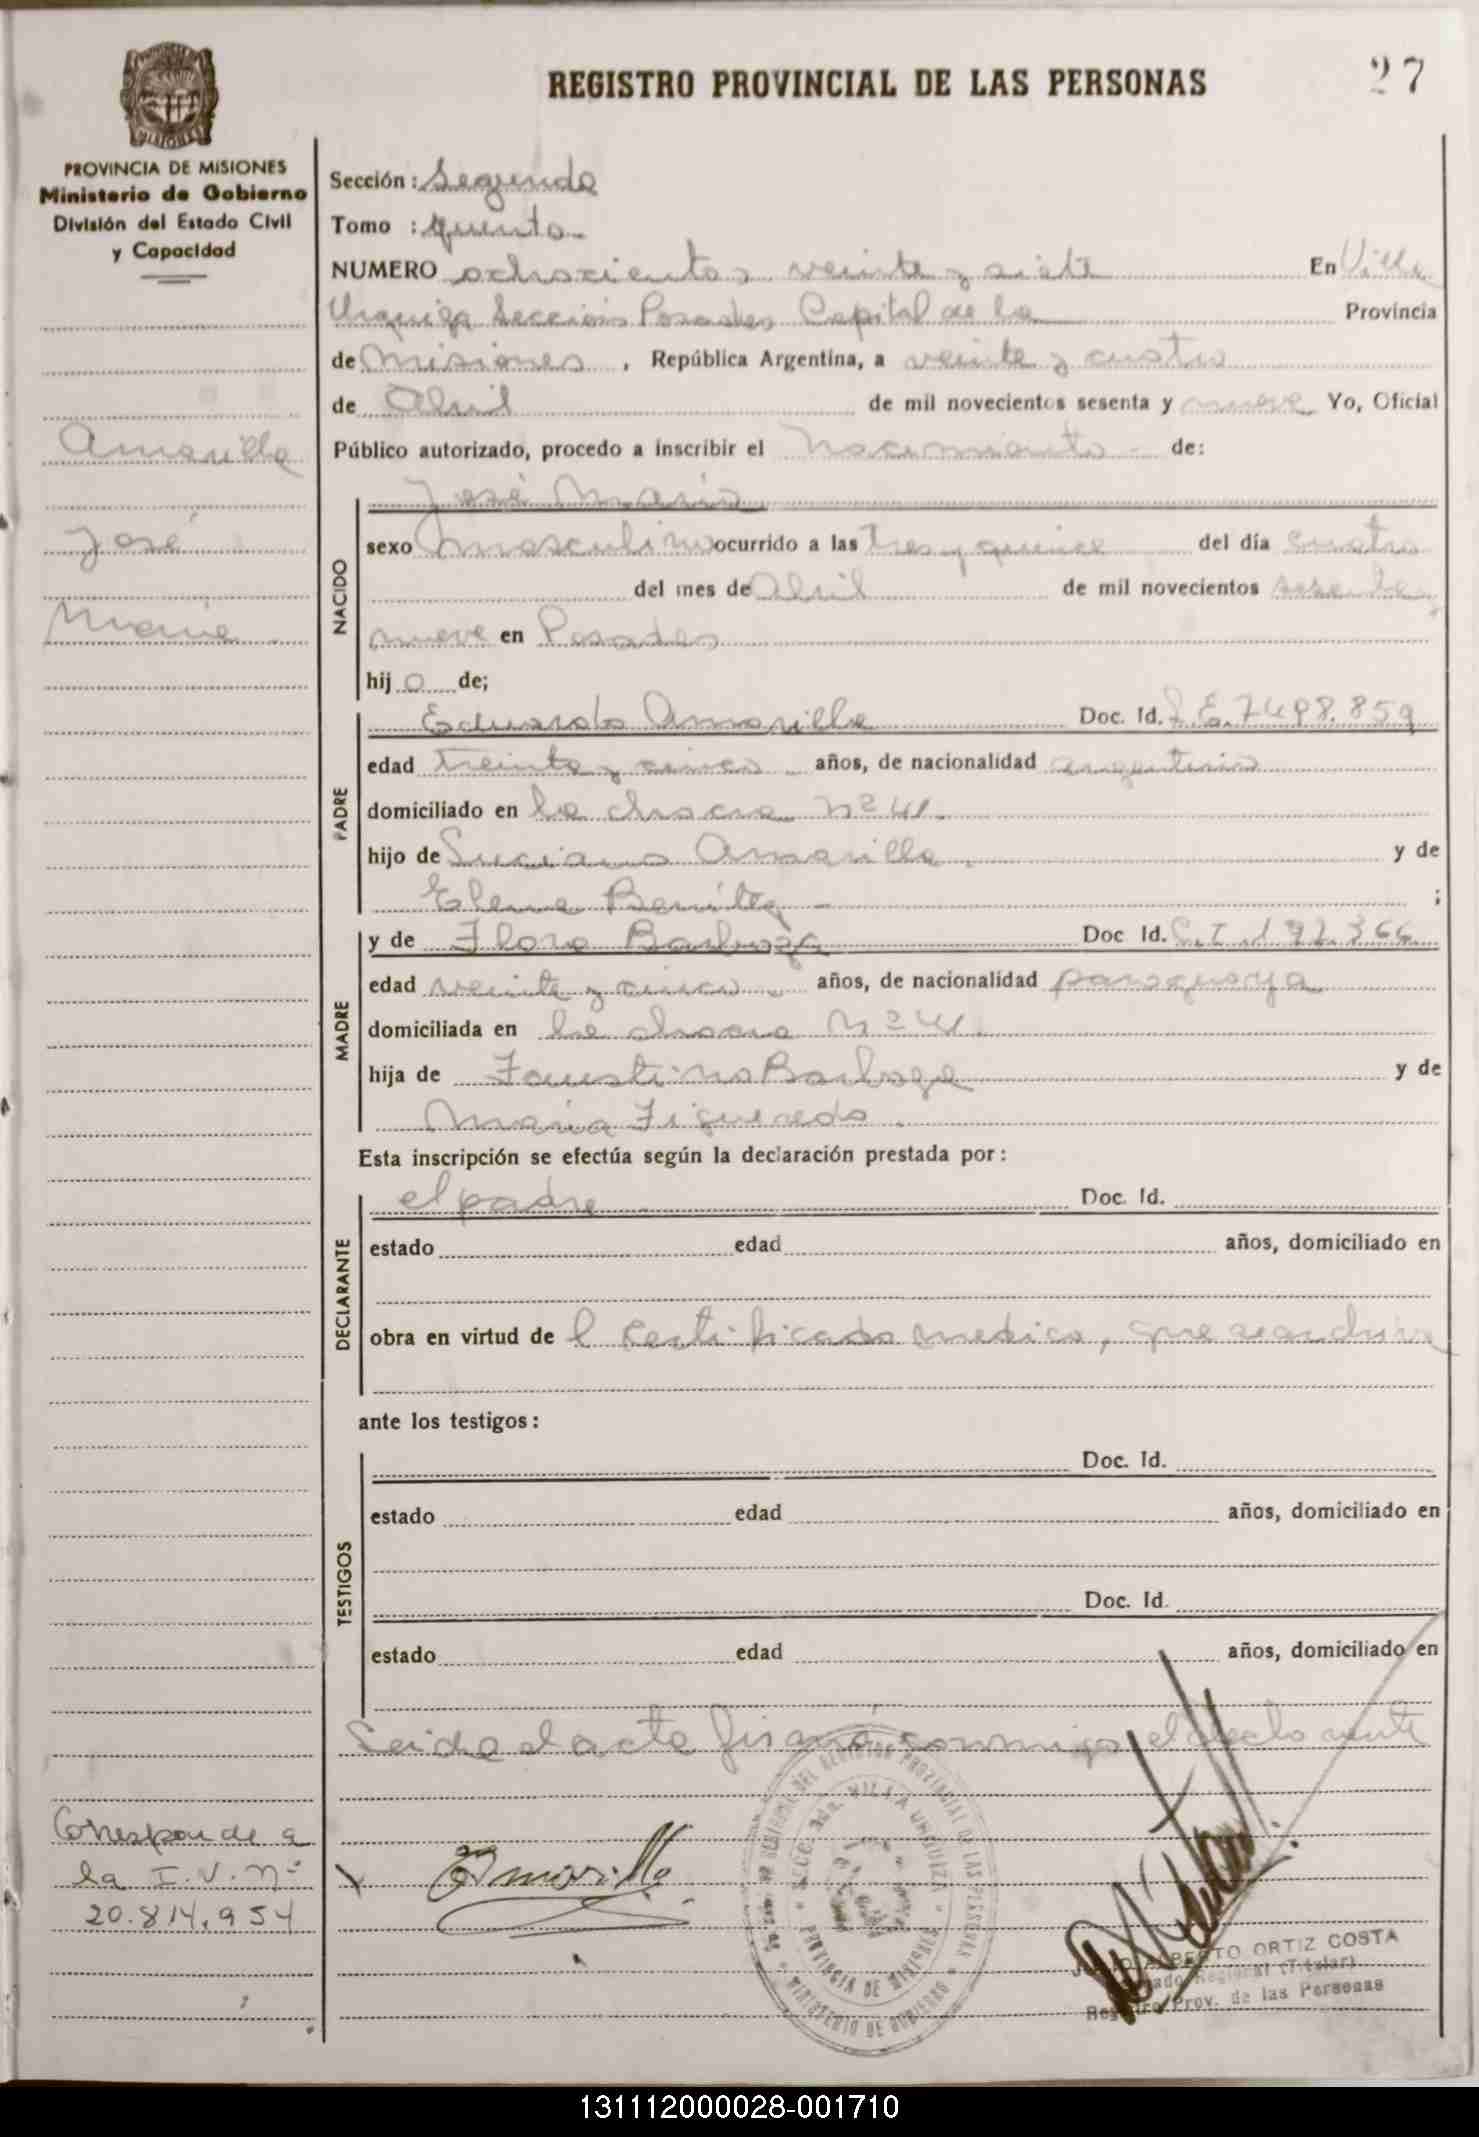 REGISTRO PROVINCIAL DE LAS PERSONAS
27
PROVINCIA DE MISIONES
Ministerio de Gobierno
División del Estado Civil
y Capacidad
Amarilla
José
María
Corresponde a
la I.V. nº
20.814.954
Sección: Segunda
Tomo : quinto
NUMERO ochocientos veinte y siete En Villa
Urquiza Sección Posadas Capital de la Provincia
de Misiones, República Argentina, a veinte y cuatro
de Abril de mil novecientos sesenta y nueve Yo, Oficial
Público autorizado, procedo a inscribir el Nacimiento de:
NACIDO
José María
sexo masculino ocurrido a las tres y quince del día cuatro
del mes de Abril de mil novecientos sesenta y
nueve en Posadas
hij o de;
PADRE
Eduardo Amarilla Doc. Id. L.E. 7498.859
edad treinta y cinco años, de nacionalidad argentino
domiciliado en la chacra nº 41.
hijo de Luciano Amarilla. y de
Elena Benítez - ;
MADRE
y de Flora Barboza Doc Id. C.I. 192.366
edad veinte y cinco años, de nacionalidad paraguaya
domiciliada en la chacra Nº 41.
hija de Faustino Barboza y de
María Figueredo.
Esta inscripción se efectúa según la declaración prestada por:
DECLARANTE
el padre Doc. Id.
estado edad años, domiciliado en
obra en virtud de l certificado medico, que
ante los testigos:
TESTIGOS
Doc. Id.
estado edad años, domiciliado en
Doc. Id.
estado edad años, domiciliado en
Leida el acta firmó conmigo el declarante
EAmarilla
SECC. 2da. VILLA URQUIZA
PROVINCIA DE MISIONES
MINISTERIO DE GOBIERNO
DEL REGISTRO PROVINCIAL DE LAS PERSONAS
ALBERTO ORTIZ COSTA
Regional (Titular)
Registro Prov. de las Personas
131112000028-001710